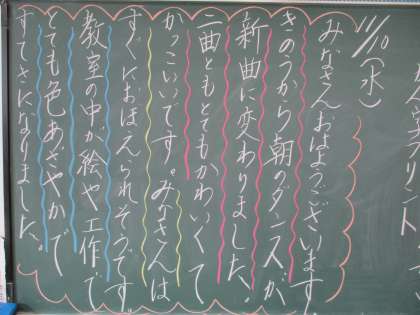 11/10(水)
みなさんおはようございます。
きのうから朝のダンスが
新曲に変わりました。
二曲ともとてもかわいくて
かっこいいです。みなさんは
すぐにおぼえられそうです。
教室の中が絵や工作で
とても色あざやかで
すてきになりました。